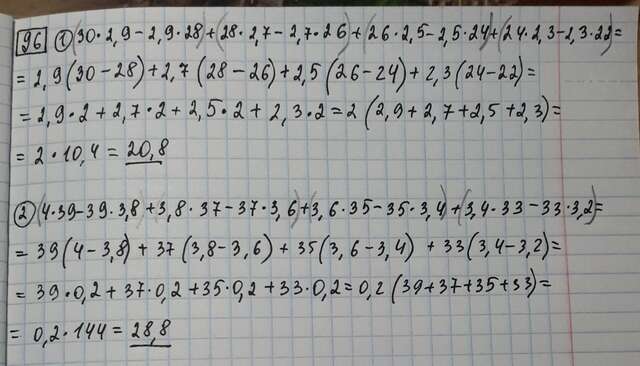 96 ① (30·2,9-2,9·28)+(28·2,7-2,7·26)+(26·2,5-2,5·24)+(24·2,3-2,3·22)=
=2,9(30-28)+2,7(28-26)+2,5(26-24)+2,3(24-22)=
=2,9·2+2,7·2+2,5·2+2,3·2=2(2,9+2,7+2,5+2,3)=
=2·10,4=20,8
② (4·39-39·3,8)+(3,8·37-37·3,6)+(3,6·35-35·3,4)+(3,4·33-33·3,2)=
=39(4-3,8)+37(3,8-3,6)+35(3,6-3,4)+33(3,4-3,2)=
=39·0,2+37·0,2+35·0,2+33·0,2=0,2(39+37+35+33)=
=0,2·144=28,8